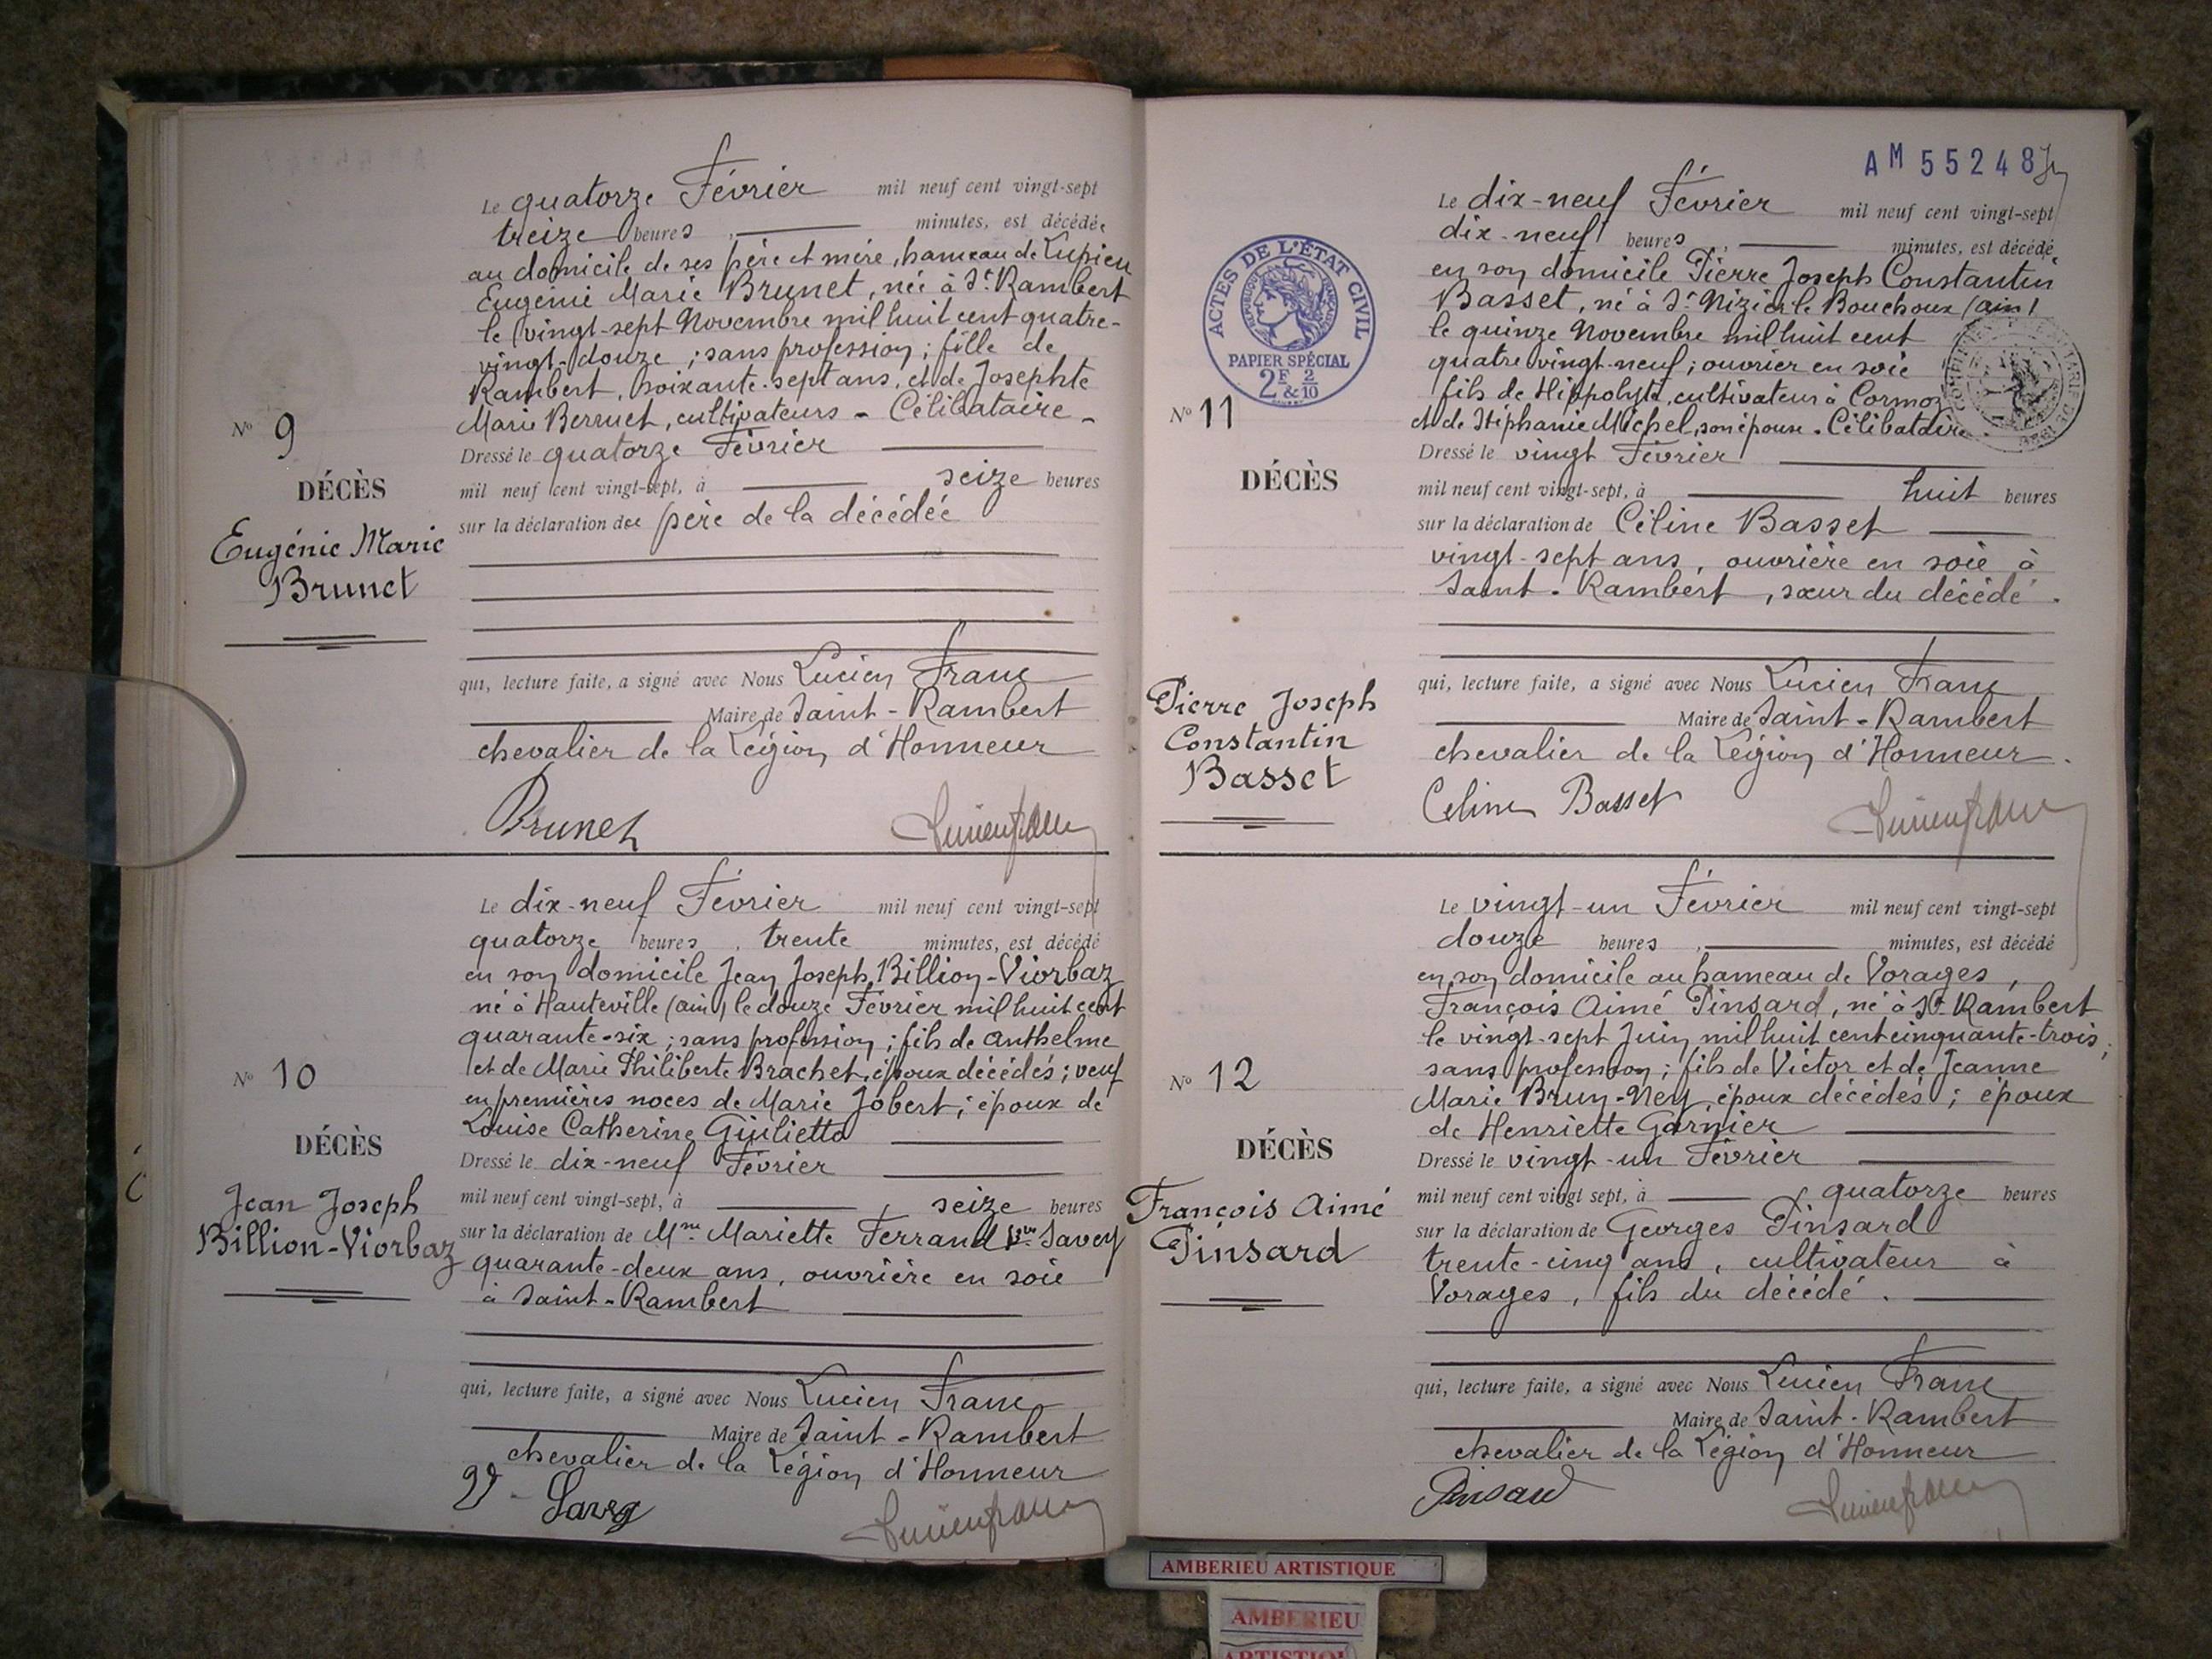 Le quatorze Février mil neuf cent vingt-sept
treize heures, minutes, est décédée
au domicile de ses père et mère, hameau de Lupieu
Eugénie Marie Brunet, née à St Rambert
le vingt-sept Novembre mil huit cent quatre-
vingt-douze ; sans profession ; fille de
Rambert, soixante-sept ans, et de Josephte
Marie Berruet, cultivateurs - Célibataire -
Nº 9
Dressé le quatorze Février
mil neuf cent vingt-sept, à seize heures
DÉCÈS
sur la déclaration du père de la décédée
Eugénie Marie
Brunet
qui, lecture faite, a signé avec Nous Lucien Franc
Maire de Saint-Rambert
chevalier de la Légion d'Honneur
Brunet
Lucien Franc
Le dix-neuf Février mil neuf cent vingt-sept
quatorze heures, trente minutes, est décédé
en son domicile Jean Joseph Billion-Viorbaz
né à Hauteville (ain) le douze Février mil huit cent
quarante-six ; sans profession ; fils de Anthelme
et de Marie Philiberte Brachet, époux décédés ; veuf
en premières noces de Marie Jobert ; époux de
Louise Catherine Giulietto
Nº 10
DÉCÈS
Dressé le dix-neuf Février
mil neuf cent vingt-sept, à seize heures
Jean Joseph
Billion-Viorbaz
sur la déclaration de Mme Mariette Ferrand Vve Savey
quarante-deux ans, ouvrière en soie
à Saint-Rambert
qui, lecture faite, a signé avec Nous Lucien Franc
Maire de Saint-Rambert
chevalier de la Légion d'Honneur
Lucien Franc
AM 55248
ACTES DE L'ÉTAT CIVIL
RÉPUBLIQUE FRANÇAISE
PAPIER SPÉCIAL
2F & 2/10
Le dix-neuf Février mil neuf cent vingt-sept
dix-neuf heures, minutes, est décédé
en son domicile Pierre Joseph Constantin
Basset, né à St Nizier le Bouchoux (ain)
le quinze Novembre mil huit cent
quatre vingt-neuf ; ouvrier en soie
fils de Hippolyte, cultivateur à Cormoz
et de Stéphanie Michel, son épouse. Célibataire.
Nº 11
Dressé le vingt Février
DÉCÈS
mil neuf cent vingt-sept, à huit heures
sur la déclaration de Céline Basset
vingt-sept ans, ouvrière en soie à
Saint-Rambert, sœur du décédé.
Pierre Joseph
Constantin
Basset
qui, lecture faite, a signé avec Nous Lucien Franc
Maire de Saint-Rambert
chevalier de la Légion d'Honneur.
Celine Basset
Lucien Franc
Le vingt-un Février mil neuf cent vingt-sept
douze heures, minutes, est décédé
en son domicile au hameau de Vorages,
François Aimé Pinsard, né à St Rambert
le vingt-sept Juin mil huit cent cinquante-trois ;
sans profession ; fils de Victor et de Jeanne
Marie Brun-Ney, époux décédés ; époux
de Henriette Garnier
Nº 12
DÉCÈS
Dressé le vingt-un Février
mil neuf cent vingt sept, à quatorze heures
François Aimé
Pinsard
sur la déclaration de Georges Pinsard
trente-cinq ans, cultivateur à
Vorages, fils du décédé.
qui, lecture faite, a signé avec Nous Lucien Franc
Maire de Saint-Rambert
chevalier de la Légion d'Honneur
Pinsard
Lucien Franc
AMBERIEU ARTISTIQUE
AMBERIEU
ARTISTIQUE